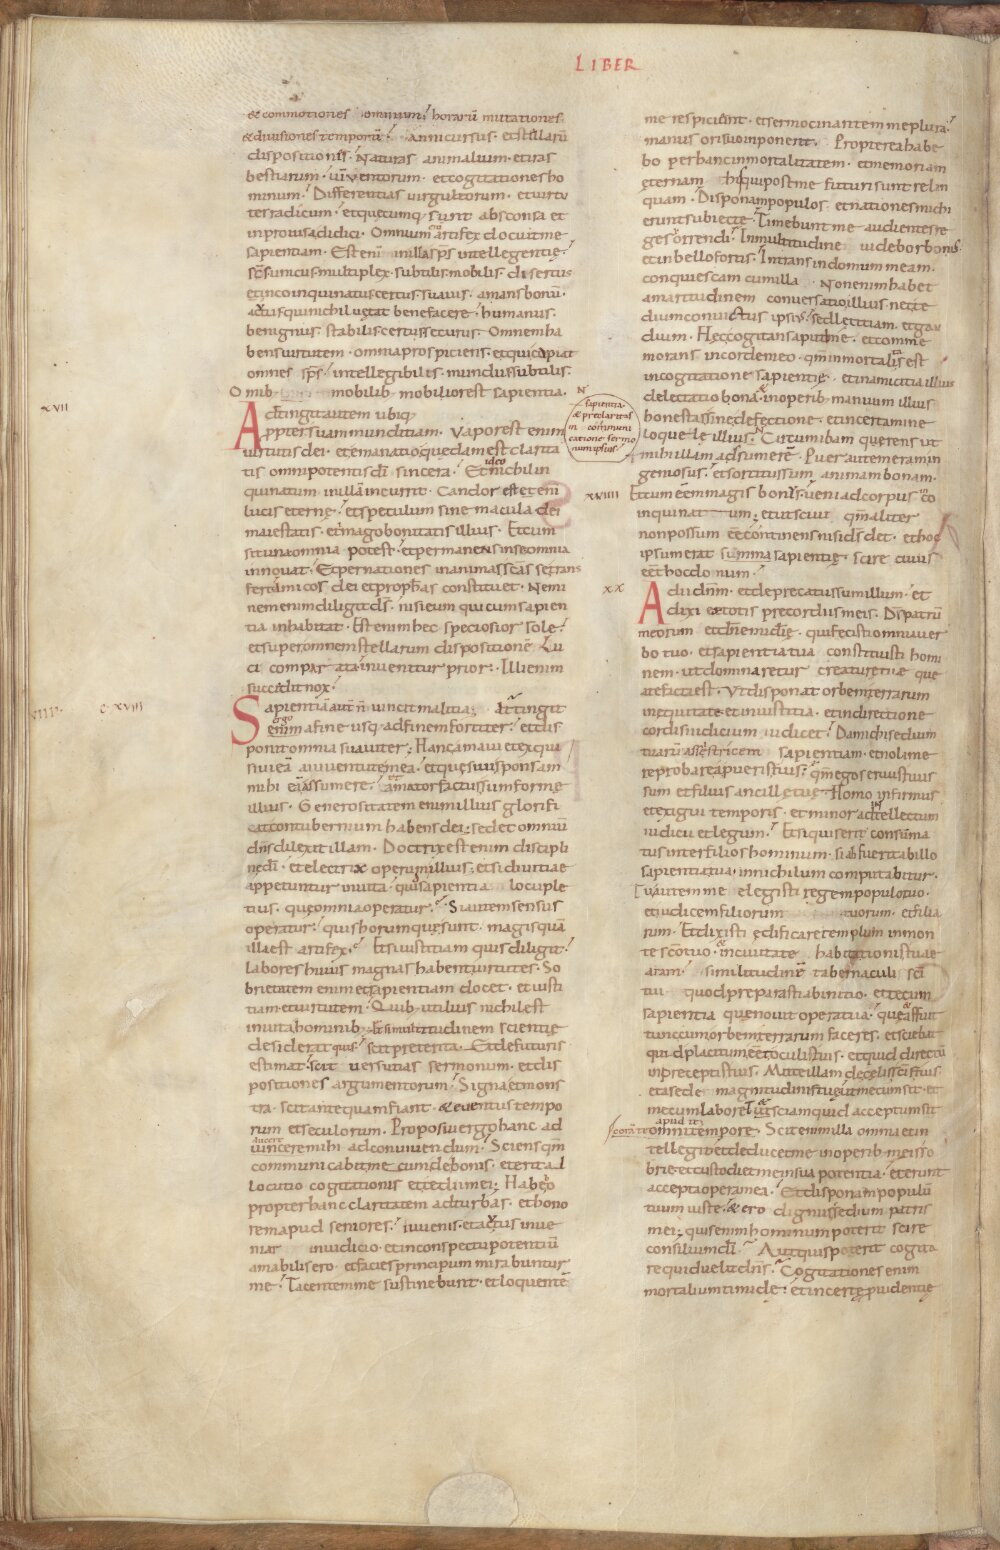 LIBER
& commotiones omnium. horarū mutationes
& divisiones temporū. anni cursus. et stellarū
dispositiones. Naturas animalium. et iras
bestiarum. uim uentorum. et cogitationes ho
minum. Differentias uirgultorum. et uirtu
tes radicum. et quęcumq; sunt absconsa et
inprouisa didici. Omnium artifex docuit me
sapientam. Est enī in illa sp̄s intellegentię.
sc̄s unicus. multiplex. subtilis. mobilis. disertus
et incoinquinatus. certus. suauis. amans bonū.
acutus qui nichil uetat benefacere. humanus.
benignus. stabilis. certus securus. Omnem ha
bens uirtutem. omnia prospiciens. et qui capiat
omnes sp̄s. intellegibilis. mundus subtilis.
Omnib; mobilib; mobilior est sapientia.
xvii
Adtingit autem ubiq;
Appter suam munditiam. Vapor est enim
uirtutis dei. et emanatio quędam est clarita
tis omnipotentis dī sincera. Et ideo nichil in
quinatum in illā incurrit. Candor est etenī
lucis eternę. et speculum sine macula dei
maiestatis. et imago bonitatis illius. Et cum
sit una omnia potest. et permanens in se omnia
innouat. Et per nationes in animas sc̄as se trans
fert. amicos dei et prophᷓas constituet. Nemi
nem enim diligit ds̄. nisi eum qui cum sapien
tia inhabitat. Est enim hec speciosior sole.
et super omnem stellarum dispositionē. Lu
ci comparata inuenitur prior. Illi enim
succedit nox.
xviii
Sapientiā aut̄ n̄ uincit malitia; Attingit
ergo
enim a fine usq; ad finem fortiter. et dis
ponit omnia suauiter; Hanc amaui et exqui
siui eā a iuuentute mea. et quęsiui sponsam
mihi eā assumere. et amator factus sum formę
illius. Generositatem enim illius glorifi
cat contubernium habens dei; sed et omniū
dn̄s dilexit illam. Doctrix est enim discipli
nę dī. et electrix operum illius. et si diuitiae
appetuntur in uita. quid sapientia locuple
tius. quę omnia operatur. Si autem sensus
operatur. quis horum quę sunt. magis quā
illa est artifex. Et si iustitiam quis diligit.
labores huius magnas habent uirtutes. So
brietatem enim et sapientiam docet. et iusti
tiam et uirtutem. Quib; utilius nichil est
in uita hominib; Et si multitudinem scientię
desiderat quis. scit preterita. et de futuris
estimat. scit uersutias sermonum. et dis
positiones argumentorum. Signa et mons
tra. scit antequam fiant. & euentus tempo
rum et seculorum. Proposui ergo hanc ad
ducere
uincere mihi ad conuiuendum. Sciens qm̄
communicabit me cum de bonis. et erit al
locutio cogitationis et tedii mei; Habeo
propter hanc claritatem ad turbas. et hono
rem apud seniores. iuuenis. et acutus inue
niar in iudicio. et in conspectu potentiū
amabilis ero. et facies principum mirabuntur
me. Tacentem me sustinebunt. et loquentē
me respicient. et sermocinantem me plura.
manus ori suo imponent. Propterea habe
bo per hanc inmortalitatem. et memoriam
ęternam his qui post me futuri sunt relin
quam. Disponam populos. et nationes michi
erunt subiectę. Timebunt me audientes re
ges orrendi. In multitudine uidebor bonus.
et in bello fortis. Intrans in domum meam.
conquiescam cum illa. Non enim habet
amaritudinem conuersatio illius. nec tę
dium conuictus ipsius. sed lętitiam. et gau
dium. Hęc cogitans aput me. et comme
morans in corde meo. qm̄ inmortalis est
in cogitatione sapientię. et in amicitia illius
delectatio bona. & in operib; manuum illius
honestas sine defectione. et in certamine
loquelę illius. Circumibam querens ut
mihi illam adsumerē. Puer autem eram in
geniosus. et sortitus sum animam bonam.
sapientia.
& preclaritas
in communi
catione sermo
num ipsius.
xviiii
Et cum eēm magis bonus. ueni ad corpus co
inquinatum; et ut sciui qm̄ aliter
non possum eē continens nisi ds̄ det. et hoc
ipsum erat summa sapientię. scire cuius
eēt hoc donum.
xx
Adii dn̄m. et deprecatus sum illum. et
dixi ex totis precordiis meis. Ds̄ patrū
meorum et dn̄e m̄dię. qui fecisti omnia uer
bo tuo. et sapientia tua constituisti homi
nem. ut domnaretur creaturę quę
a te facta est. Ut disponat orbem terrarum
in equitate et in iustitia. et in directione
cordis iudicium iudicet. Da michi sedium
tuarū assistricem sapientiam. et noli me
reprobare a pueris tuis. qm̄ ego seruus tuus
sum et filius ancillę tuę. Homo infirmus
et exigui temporis. et minor ad intellectum
iudicii et legum. Et si quis erit consūma
tus inter filios hominum. si ab fuerit ab illo
sapientia tua. in nichilum computabitur.
Tu autem me elegisti regem populo tuo.
et iudicem filiorum tuorum. et filia
rum. Et dixisti ędificare templum in mon
te sc̄o tuo. & in ciuitate habitationis tuae
aram. similitudinē tabernaculi sc̄i
tui quod preparasti ab initio. et tecum
sapientia quę nouit opera tua. quę & affuit
tunc cum orbem terrarum faceres. et sciebat
quid placitum eēt oculis tuis. et quid directū
in preceptis tuis. Mitte illam de celis sc̄is tuis
et a sede magnitudinis tuę. ut mecum sit. et
mecum laboret. & ut sciam quid acceptum sit
apud te
corā te omni tempore. Scit enim illa omnia et in
tellegit. et deducet me in operib; meis so
brie. et custodiet me in sua potentia. et erunt
accepta opera mea. Et disponam populū
tuum iuste. & ero dignus sedium patris
mei; quis enim hominum poterit scire
consilium dī. Aut quis poterit cogita
re quid uelit dn̄s. Cogitationes enim
mortalium timidę. et incertę puidentię